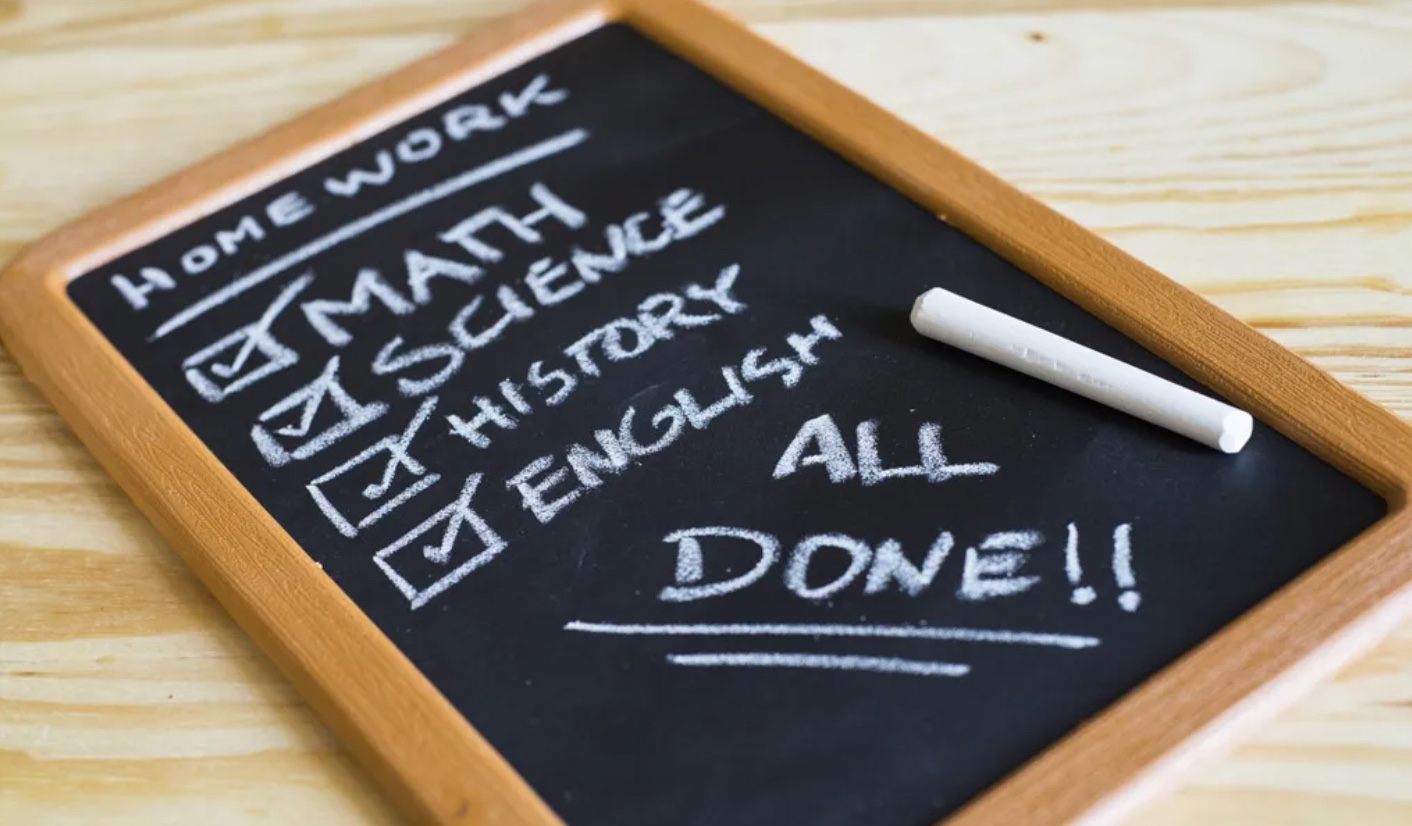 HOMEWORK
MATH
SCIENCE
HISTORY
ENGLISH
ALL
DONE!!